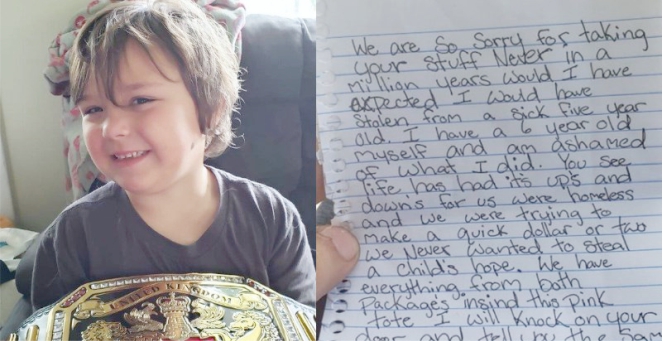 UNITED KINGDOM
We are so sorry for taking
your stuff Never in a
million years would I have
expected I would have
stolen from a sick five year
old. I have a 6 year old
myself and am ashamed
of what I did. You see
life has had it's up's and
down's for us were homeless
and we were trying to
make a quick dollar or two
we Never wanted to steal
a child's hope. We have
everything from both
Packages insind this pink
tote I will knock on your
door and tell you the sam